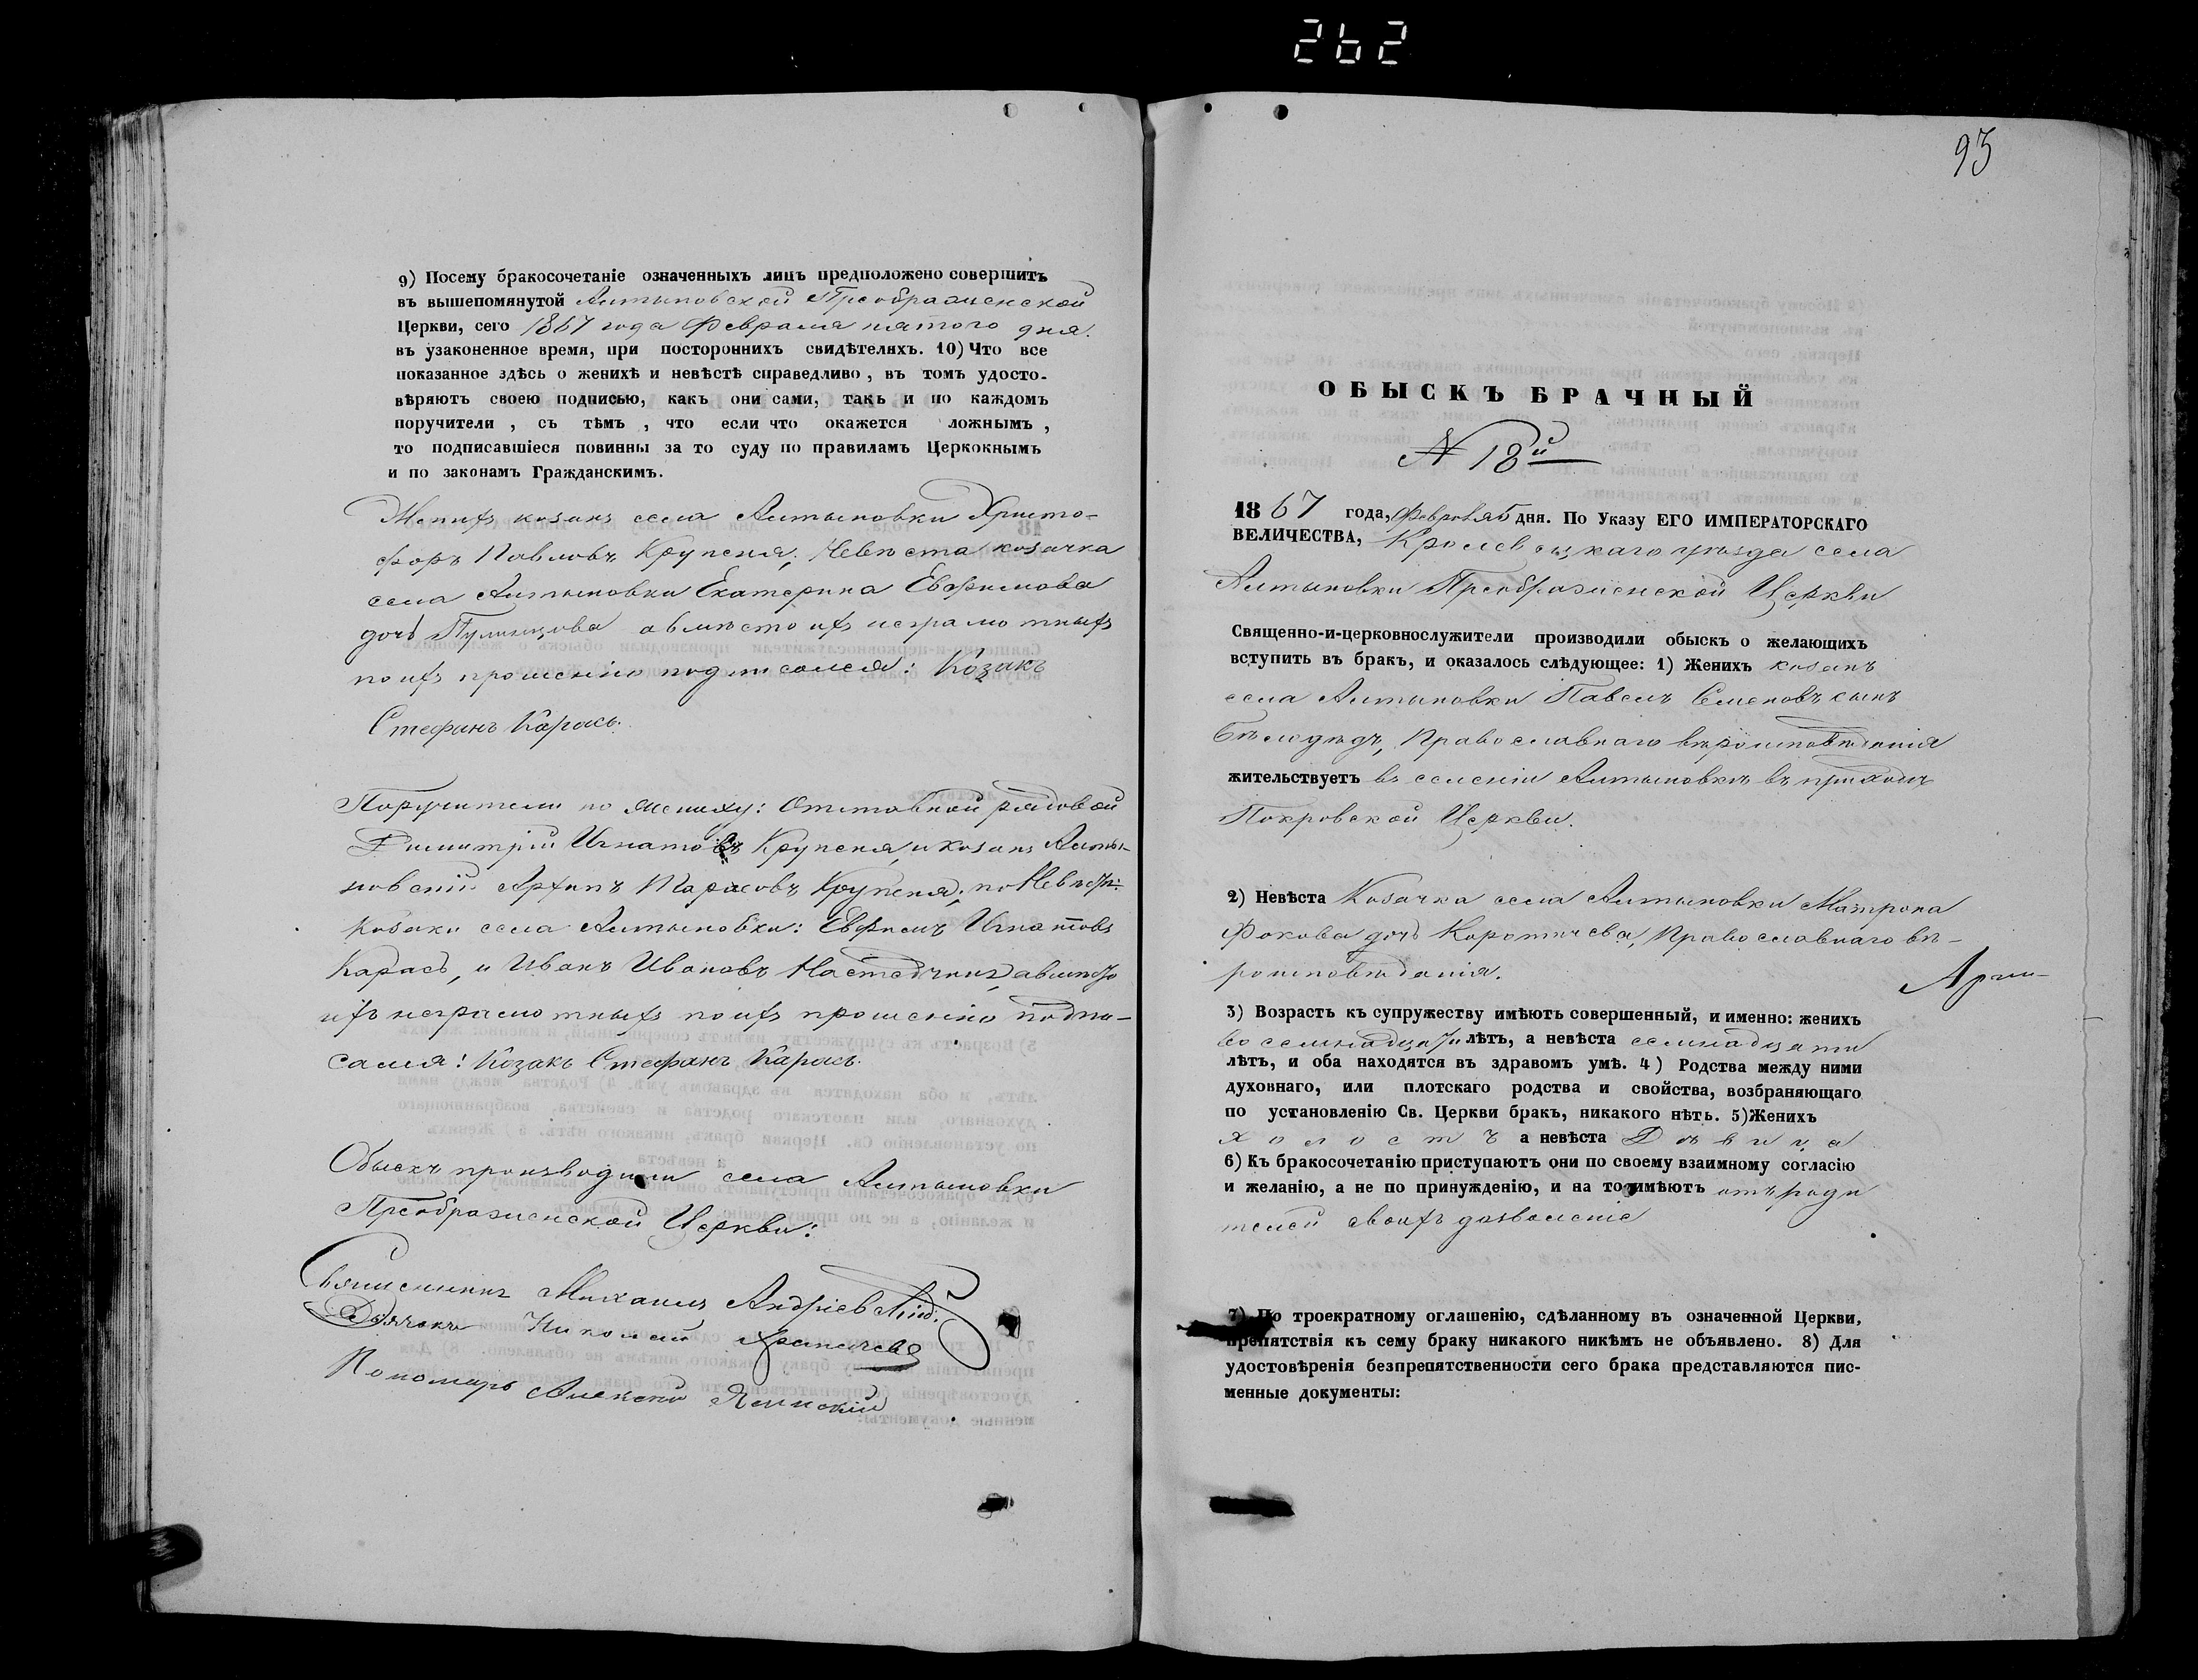 262
9) Посему бракосочетаніе означенныхъ лицъ предположено совершить
въ вышепомянутой Алтыновской Преображенской
Церкви, сего 1867 года Февраля пятого дня.
въ узаконенное время, при постороннихъ свидѣтеляхъ. 10) Что все
показанное здѣсь о женихѣ и невѣстѣ справедливо, въ томъ удосто-
вѣряютъ своею подписью, какъ они сами, такъ и по каждомъ
поручители, съ тѣмъ, что если что окажется ложнымъ,
то подписавшіеся повинны за то суду по правиламъ Церкокнымъ
и по законамъ Гражданскимъ.
Женихъ козакъ села Алтыновки Христо-
форъ Павловъ Крупеня; Невѣста козачка
села Алтыновки Екатерина Евфимова
дочь авмѣсто ихъ неграмотныхъ
по ихъ прошенію подписался: Козакъ
Стефанъ Карась.
Поручители по жениху: Отставной рядовой
Димитрій Игнатовъ Крупеня, и козакъ Алты-
новскій Архипъ Тарасовъ Крупеня; по Невѣсти:
козаки села Алтыновки: Евфимъ Игнатовъ
Карась, и Иванъ Ивановъ авмѣсто
ихъ неграмотныхъ по ихъ прошенію подпи-
сался: Козакъ Стефанъ Карась.
Обыскъ производили села Алтыновки
Преображенской Церкви:
Священникъ Михаилъ
Дячокъ Николай
Пономарь Алексей
93
ОБЫСКЪ БРАЧНЫЙ
N 18й
1867 года, Февраля 5 дня. По Указу ЕГО ИМПЕРАТОРСКАГО
ВЕЛИЧЕСТВА, Кролевецкаго уѣзда села
Алтыновки Преображенской Церкви
Священно-и-церковнослужители производили обыскъ о желающихъ
вступить въ бракъ, и оказалось слѣдующее: 1) Женихъ козакъ
села Алтыновки Павелъ Семеновъ сынъ
Бѣлодѣдъ, Православнаго вѣроисповѣданія
жительствуетъ въ селеніи Алтыновкѣ въ приходѣ
Покровской Церкви.
2) Невѣста Козачка села Алтыновки Матрона
Фокова дочь Коротичева, Православнаго вѣ-
роисповѣданія.
3) Возрасть къ супружеству имѣютъ совершенный, и именно: женихъ
восемнадцати лѣтъ, а невѣста семнадцати
лѣтъ, и оба находятся въ здравомъ умѣ. 4) Родства между ними
духовнаго, или плотскаго родства и свойства, возбраняющаго
по установленію Св. Церкви бракъ, никакого нѣтъ. 5) Женихъ
холостъ а невѣста Дѣвица
6) Къ бракосочетанію приступаютъ они по своему взаимному согласію
и желанію, а не по принужденію, и на то имѣютъ отъ роди
телей своихъ дозволеніе
7) По троекратному оглашенію, сдѣланному въ означенной Церкви,
препятствія къ сему браку никакого никѣмъ не объявлено. 8) Для
удостовѣренія безпрепятственности сего брака представляются пис-
менные документы: